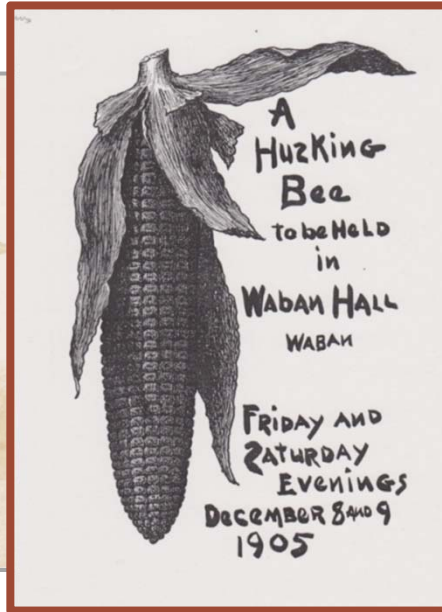 A
Husking
Bee
to be Held
in
Waban Hall
Waban
Friday and
Saturday
Evenings
December 8 and 9
1905